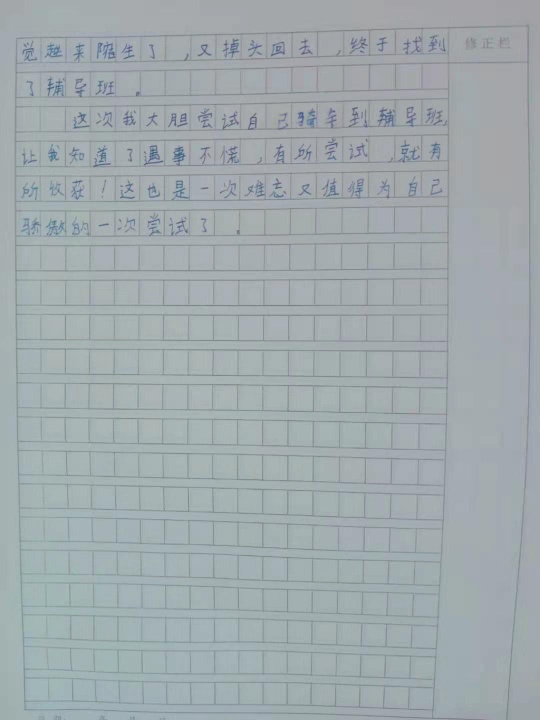 觉越来陌生了，又掉头回去，终于找到
了辅导班。
这次我大胆尝试自己骑车到辅导班，
让我知道了遇事不慌，有所尝试，就有
所收获！这也是一次难忘又值得为自己
骄傲的一次尝试了。
修正栏